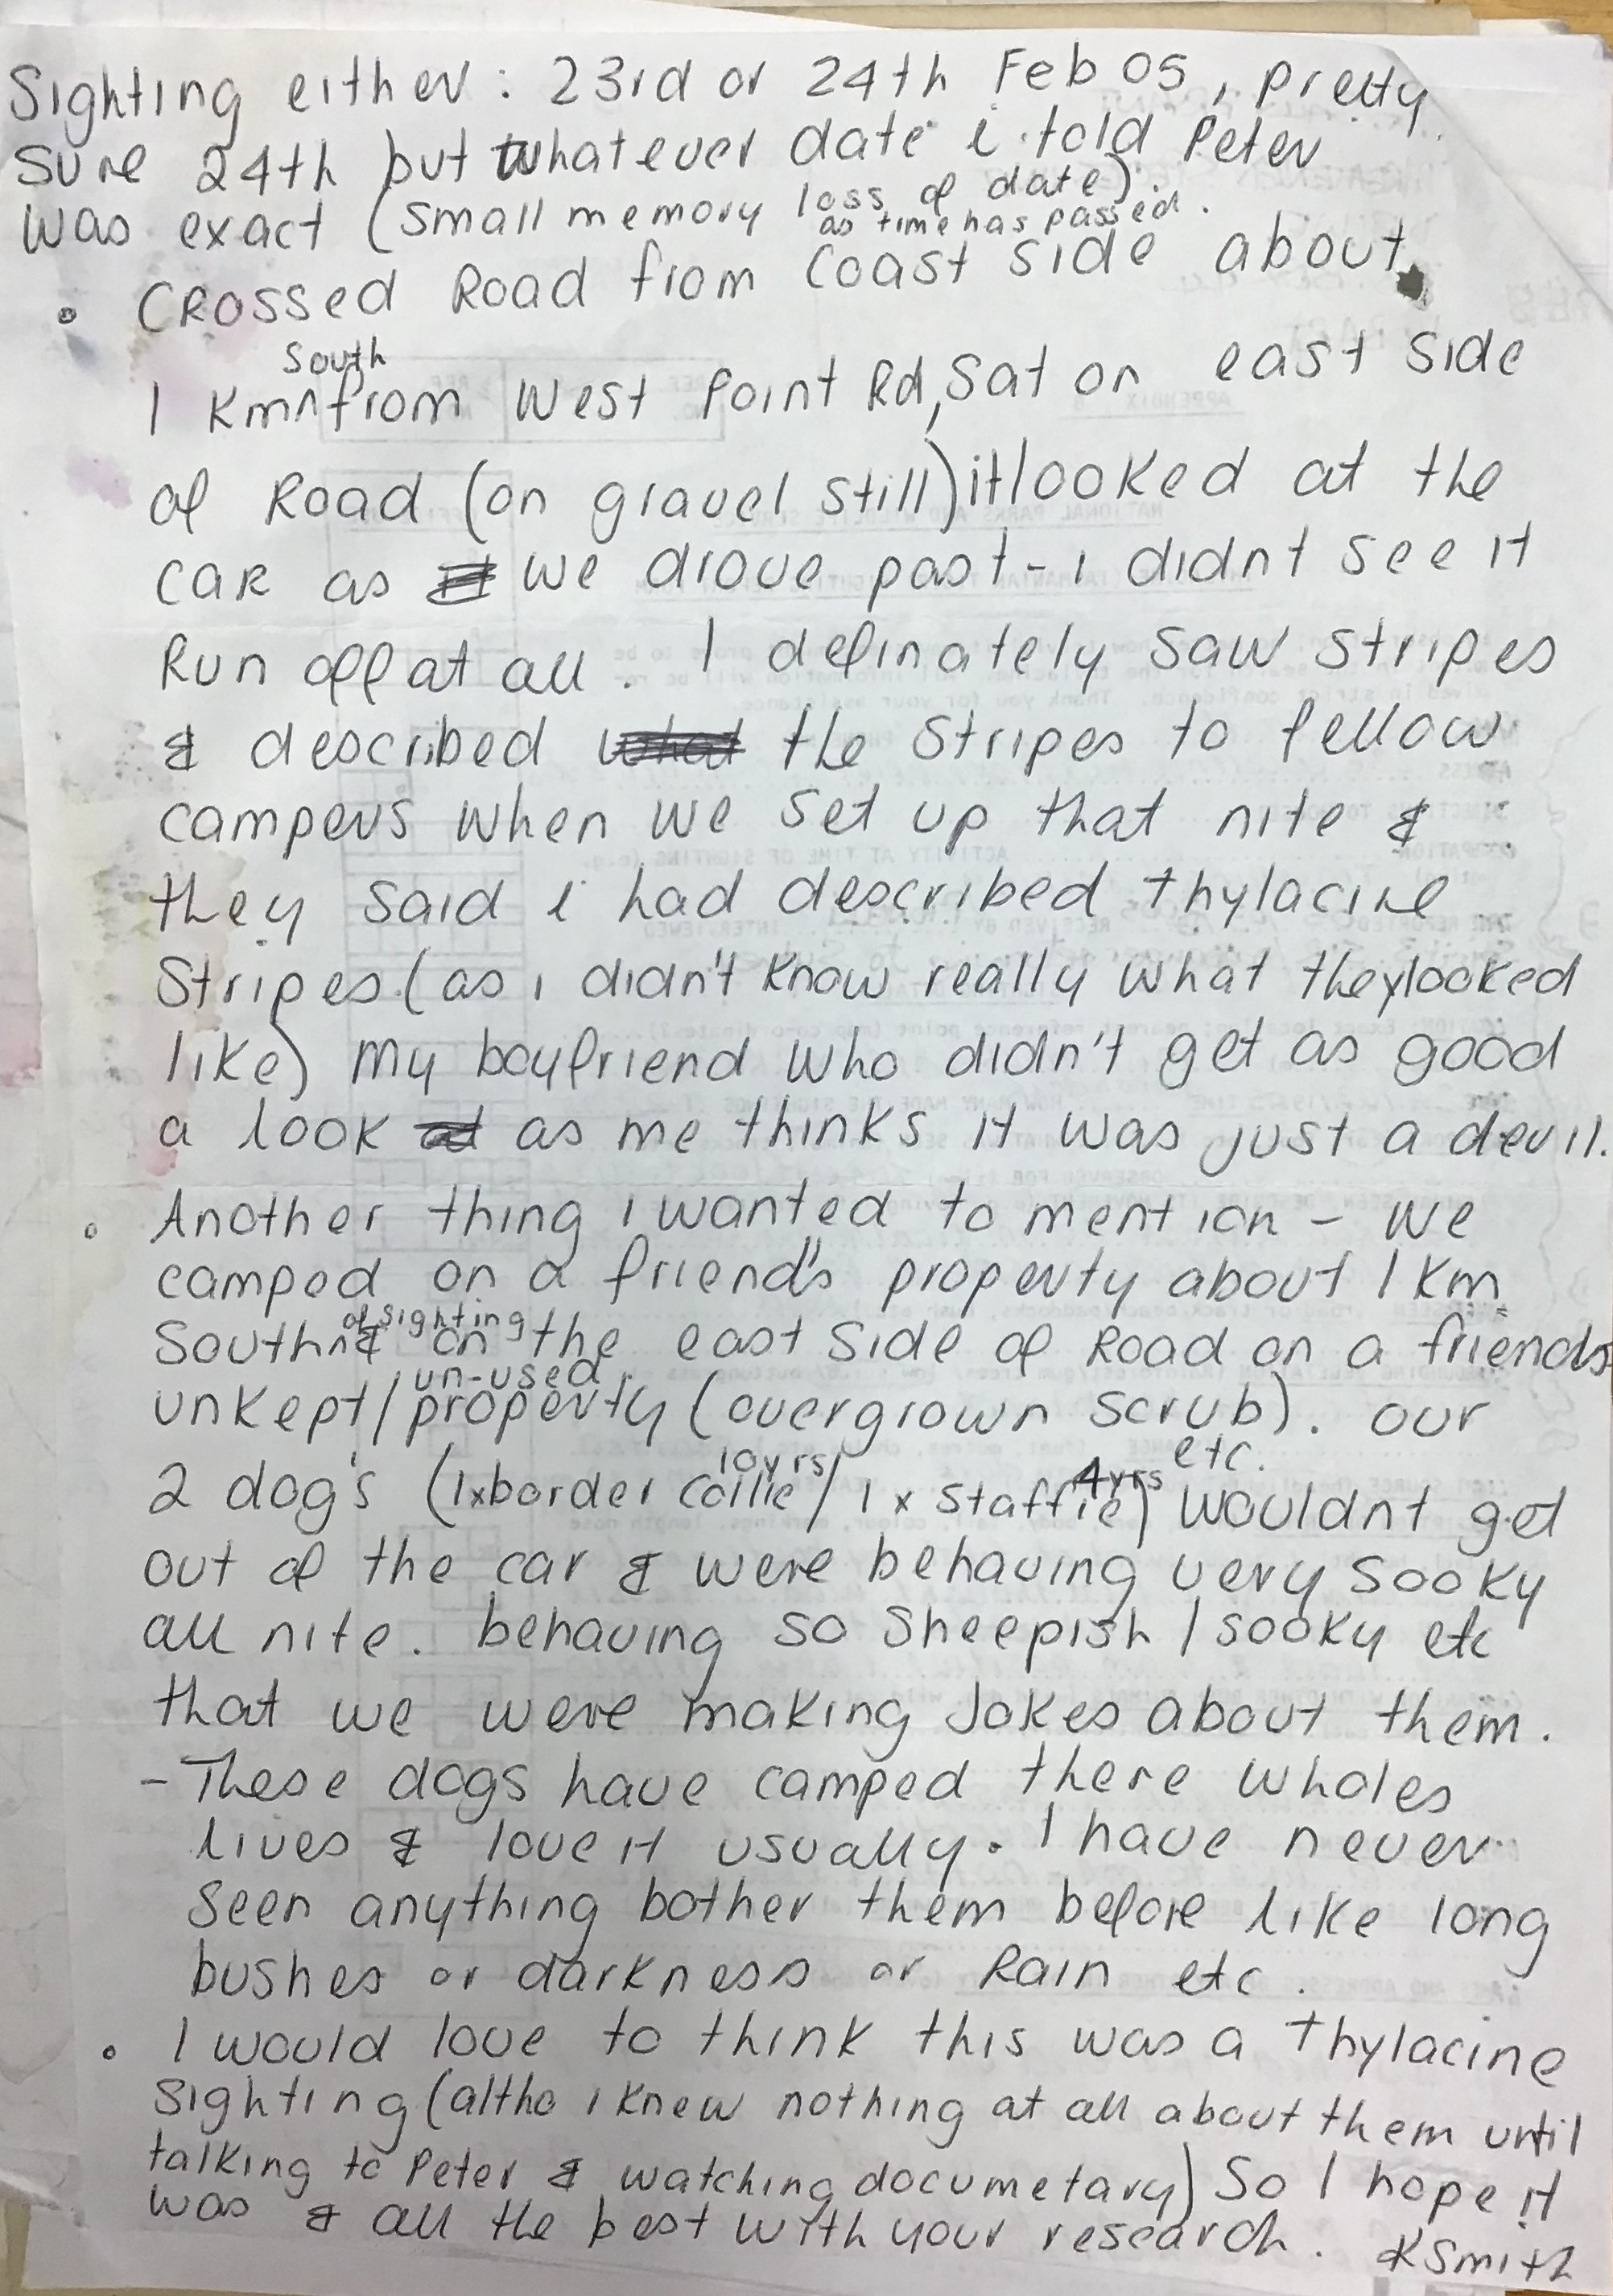 Sighting either : 23rd or 24th Feb 05, pretty
sure 24th but whatever date i told Peter
was exact (small memory loss of date).
as time has passed.
• Crossed Road from Coast side about
south
1 Km^from West Point Rd, Sat on east side
of Road (on gravel still) it looked at the
car as we drove past - i didnt see it
Run off at all. I definately saw stripes
& described the stripes to fellow
campers when we set up that nite &
they said i had described thylacine
stripes (as i didn't know really what they looked
like) my boyfriend who didn't get as good
a look as me thinks it was just a devil.
• Another thing i wanted to mention - we
camped on a friend's property about 1 Km
of sighting
South^& on the east side of Road on a friends
un-used
unkept/property (overgrown scrub). our
10yrs 4yrs etc.
2 dog's (1xborder collie/ 1 x staffie) wouldnt get
out of the car & were behaving very sooky
all nite. behaving so sheepish / sooky etc
that we were making jokes about them.
- These dogs have camped there wholes
lives & love it usually. I have never
seen anything bother them before like long
bushes or darkness or Rain etc.
• I would love to think this was a thylacine
sighting (altho i knew nothing at all about them until
talking to Peter & watching documetary) So I hope it
was & all the best with your research. KSmith